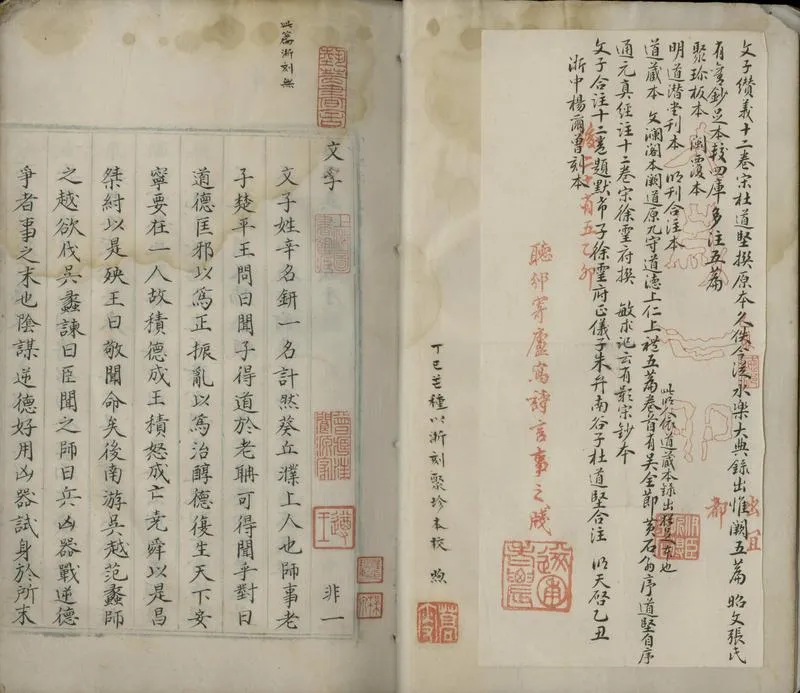 文子纘義十二卷宋杜道堅撰原本久佚今從永樂大典錄出惟闕五篇 昭文張氏
有舊鈔足本較四庫多注五篇
聚珍板本 閩覆本
明道潛堂刊本 明刊合注本
道藏本 文瀾閣本闕道原九守道德上仁上禮五篇卷首有吳全節 黃石翁序道堅自序
此明人依道藏本錄出
通元真經注十二卷宋徐靈府撰 敏求記云有影宋鈔本
文子合注十二卷題默希子徐靈府正儀子朱弁南谷子杜道堅合注 明天啓乙丑
浙中楊爾曾刻本
聽邠寄廬寫詩言事之牋
丁巳芒種以浙刻聚珍本校 煦
此篇浙刻無
文子
非一
文子姓辛名鈃一名計然葵丘濮上人也師事老
子楚平王問曰聞子得道於老聃可得聞乎對曰
道德匡邪以爲正振亂以爲治醇德復生天下安
寧要在一人故積德成王積怒成亡堯舜以是昌
桀紂以是殃王曰敬聞命矣後南游吳越范蠡師
之越欲伐吳蠡諫曰臣聞之師曰兵凶器戰逆德
爭者事之末也陰謀逆德好用凶器試身於所末